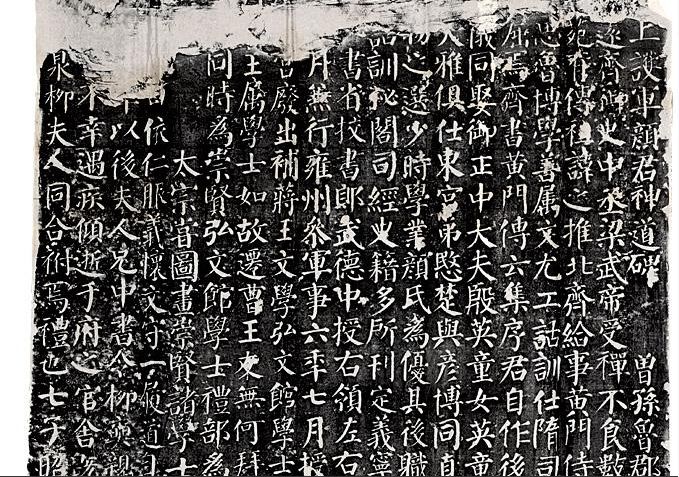 上護軍顏君神道碑 曾孫魯郡
逐齊御史中丞梁武帝受禪不食數
苑有傳祖諱之推北齊給事黃門侍
思魯博學善屬文尤工詁訓仕隋司
居焉齊書黃門傳云集序君自作後
儀同娶御正中大夫殷英童女英童
人雅俱仕東宮弟愍楚與彥博同直
物之選少時學業顏氏為優其後職
訓祕閣司經史籍多所刊定義寧
書省校書郎武德中授右領左右
月兼行雍州參軍事六年七月授
宮廢出補蔣王文學弘文館學士
王屬學士如故遷曹王友無何拜
同時為崇賢弘文館學士禮部為
太宗嘗圖畫崇賢諸學士
依仁服義懷文守一履道自
以後夫人兄中書令柳奭親
不幸遇疾傾逝于府之官舍
泉柳夫人同合祔焉禮也七子昭